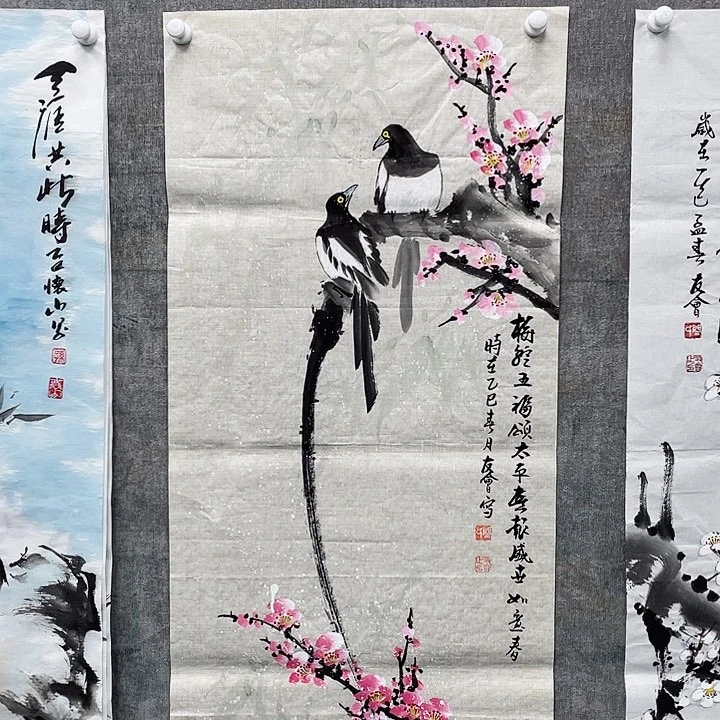 歲在乙巳孟春友會
梅綻五福頌太平春報盛世如意春
時在乙巳春月友會写
天涯共此時